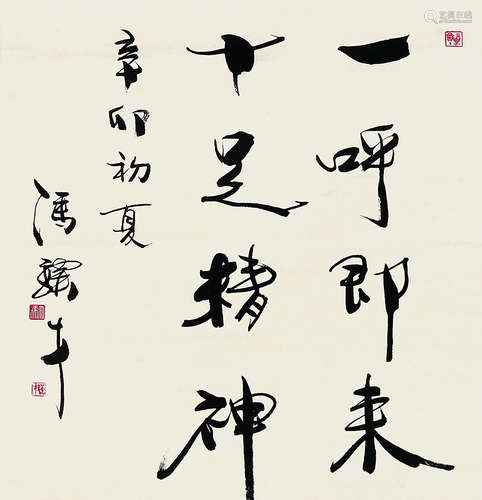 一呼即来
十足精神
辛卯初夏
冯